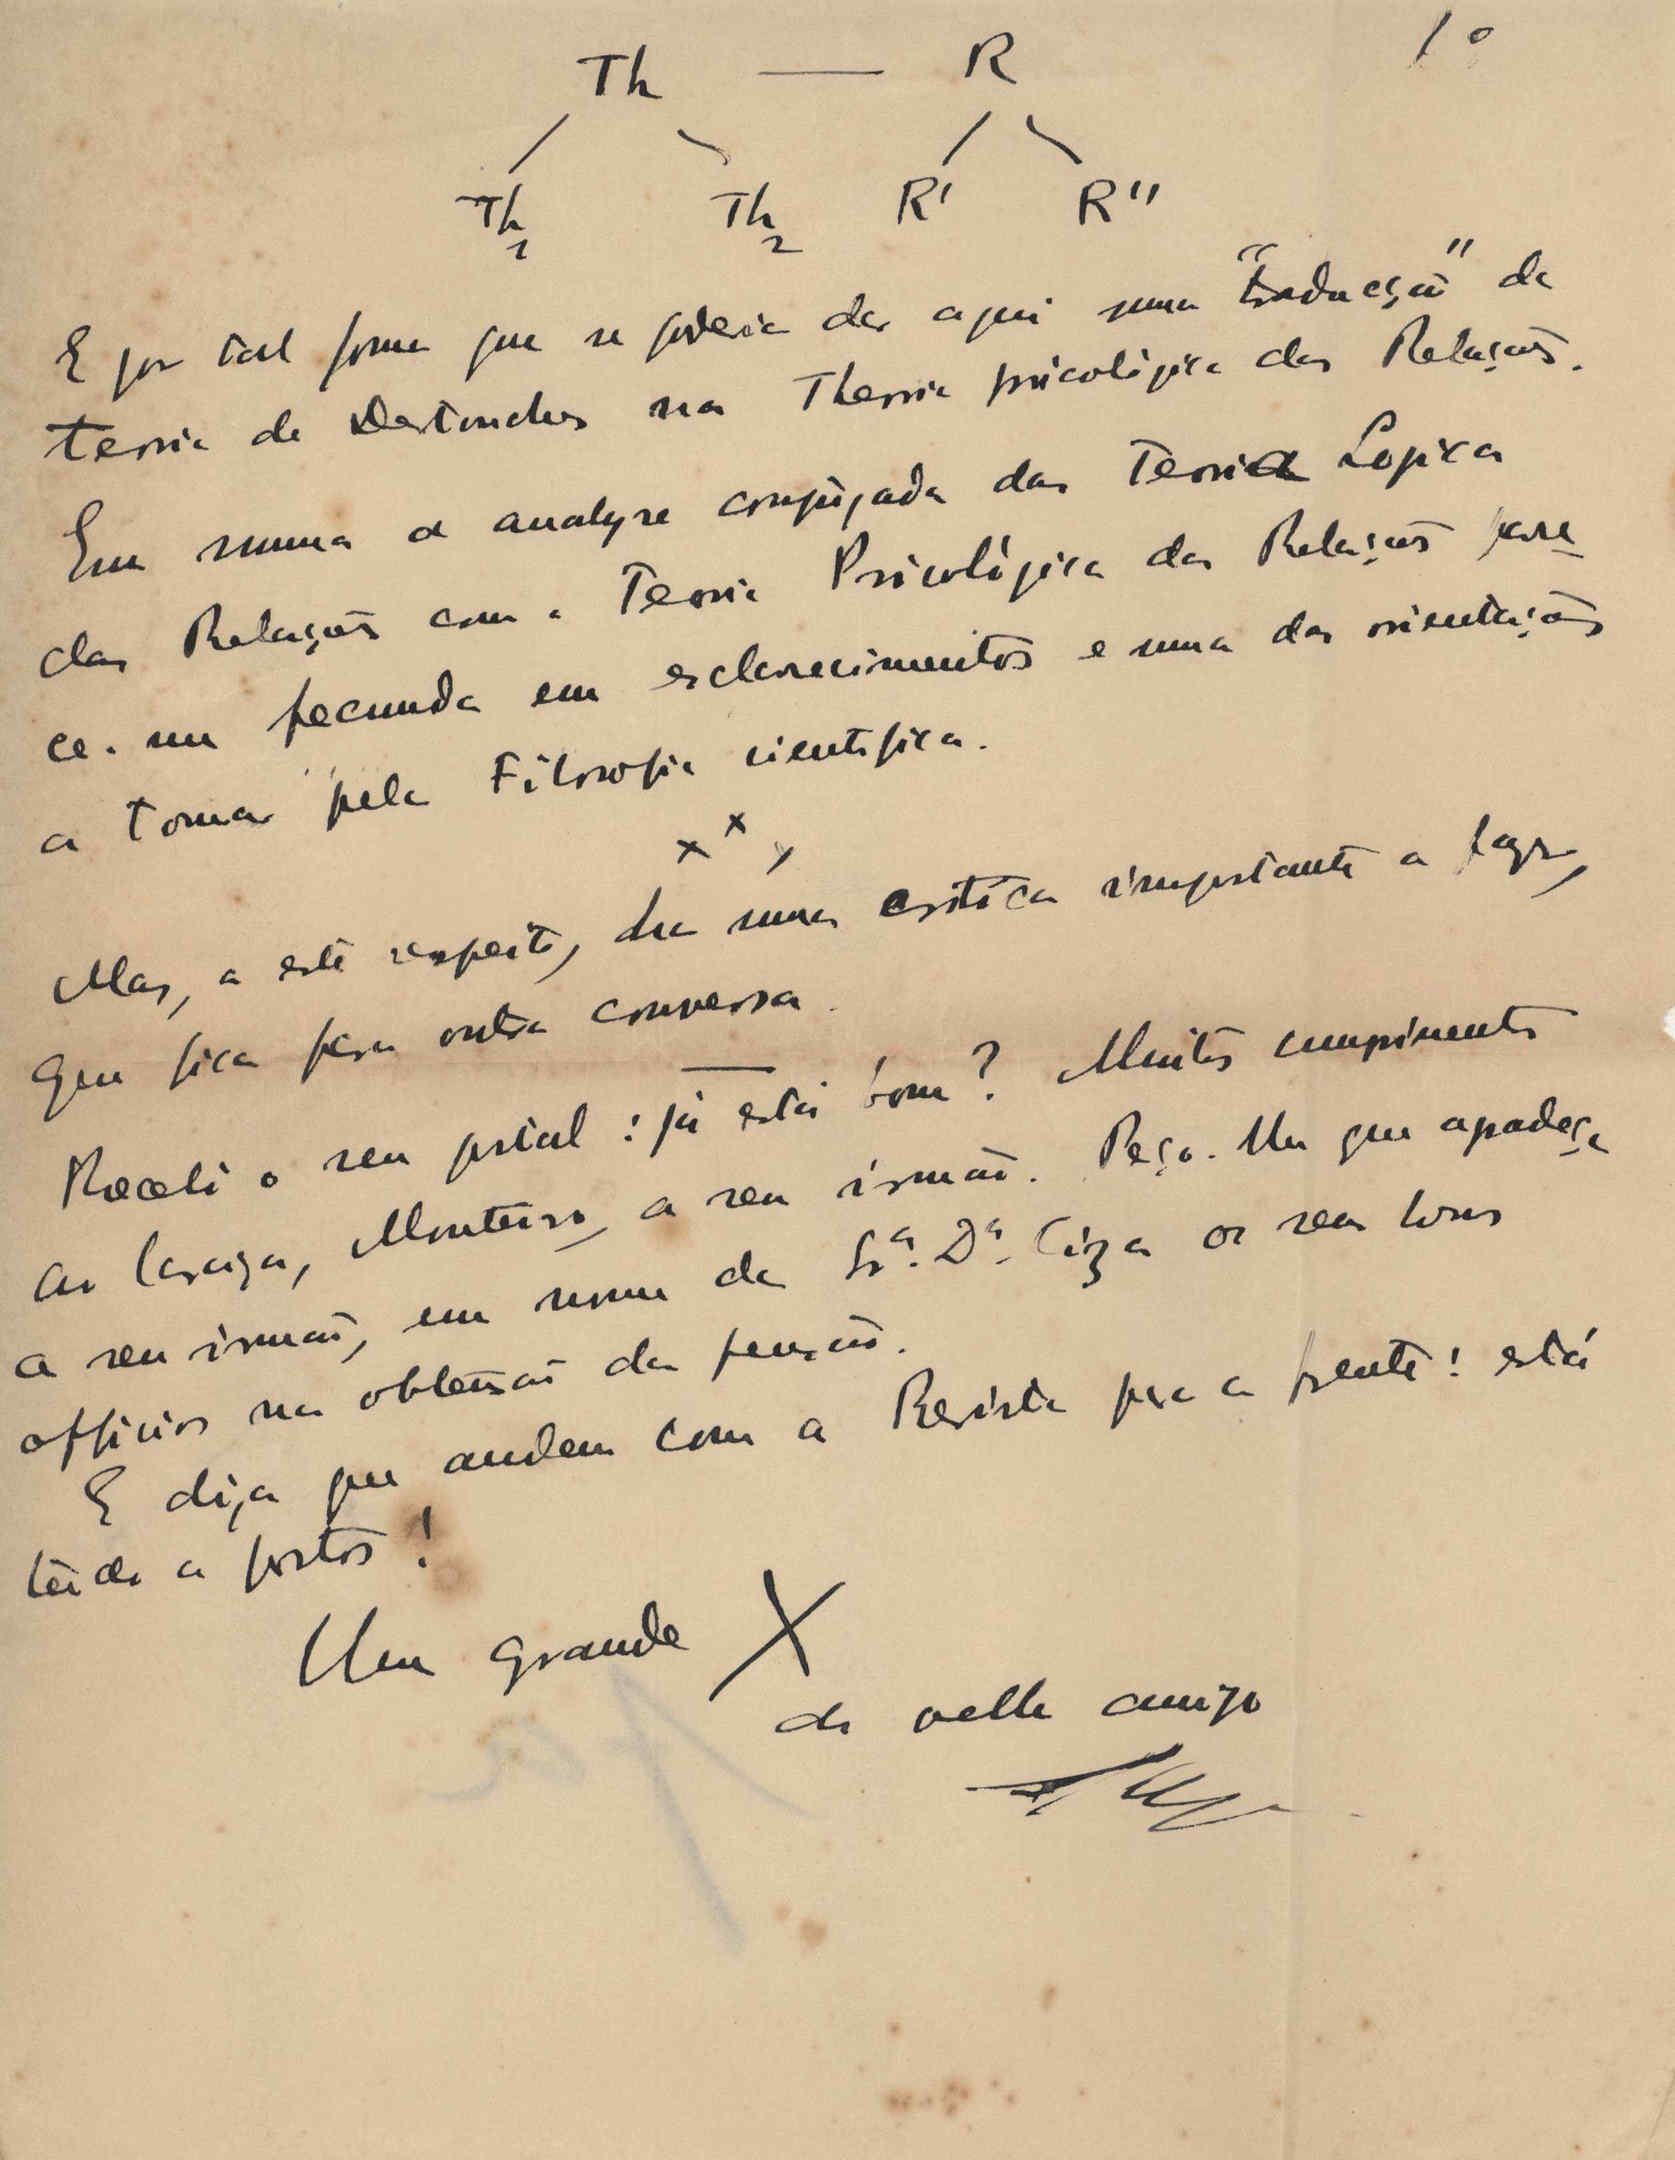 10
Th — R
Th1 Th2 R' R''
E por tal forma que se poderia dar aqui uma "traducção" da
teoria de Destouches na Theoria psicológica das Relações.
Em summa a analyse conjugada da Teoria Logica
das Relações com a Teoria Psicológica das Relações pare-
ce-me fecunda em esclarecimentos e uma das orientações
a tomar pela Filosofia cientifica.
x x x
Mas, a este respeito, ha uma critica importante a fazer,
que fica para outra conversa.
Recebi o seu postal: já está bom? Muitos cumprimentos
ao Caraça, Monteiro, a seu irmão. Peço-lhe que agradeça
a seu irmão, em nome da Sra. Da. os seus bons
officios na obtenção da pensão.
E diga que andem com a Revista para a frente! está
tudo a postos!
Um grande X
do velho amigo